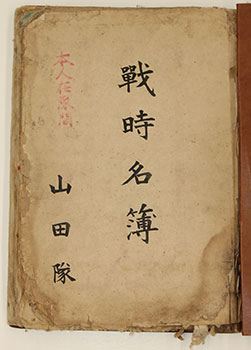 戰時名簿
山田隊